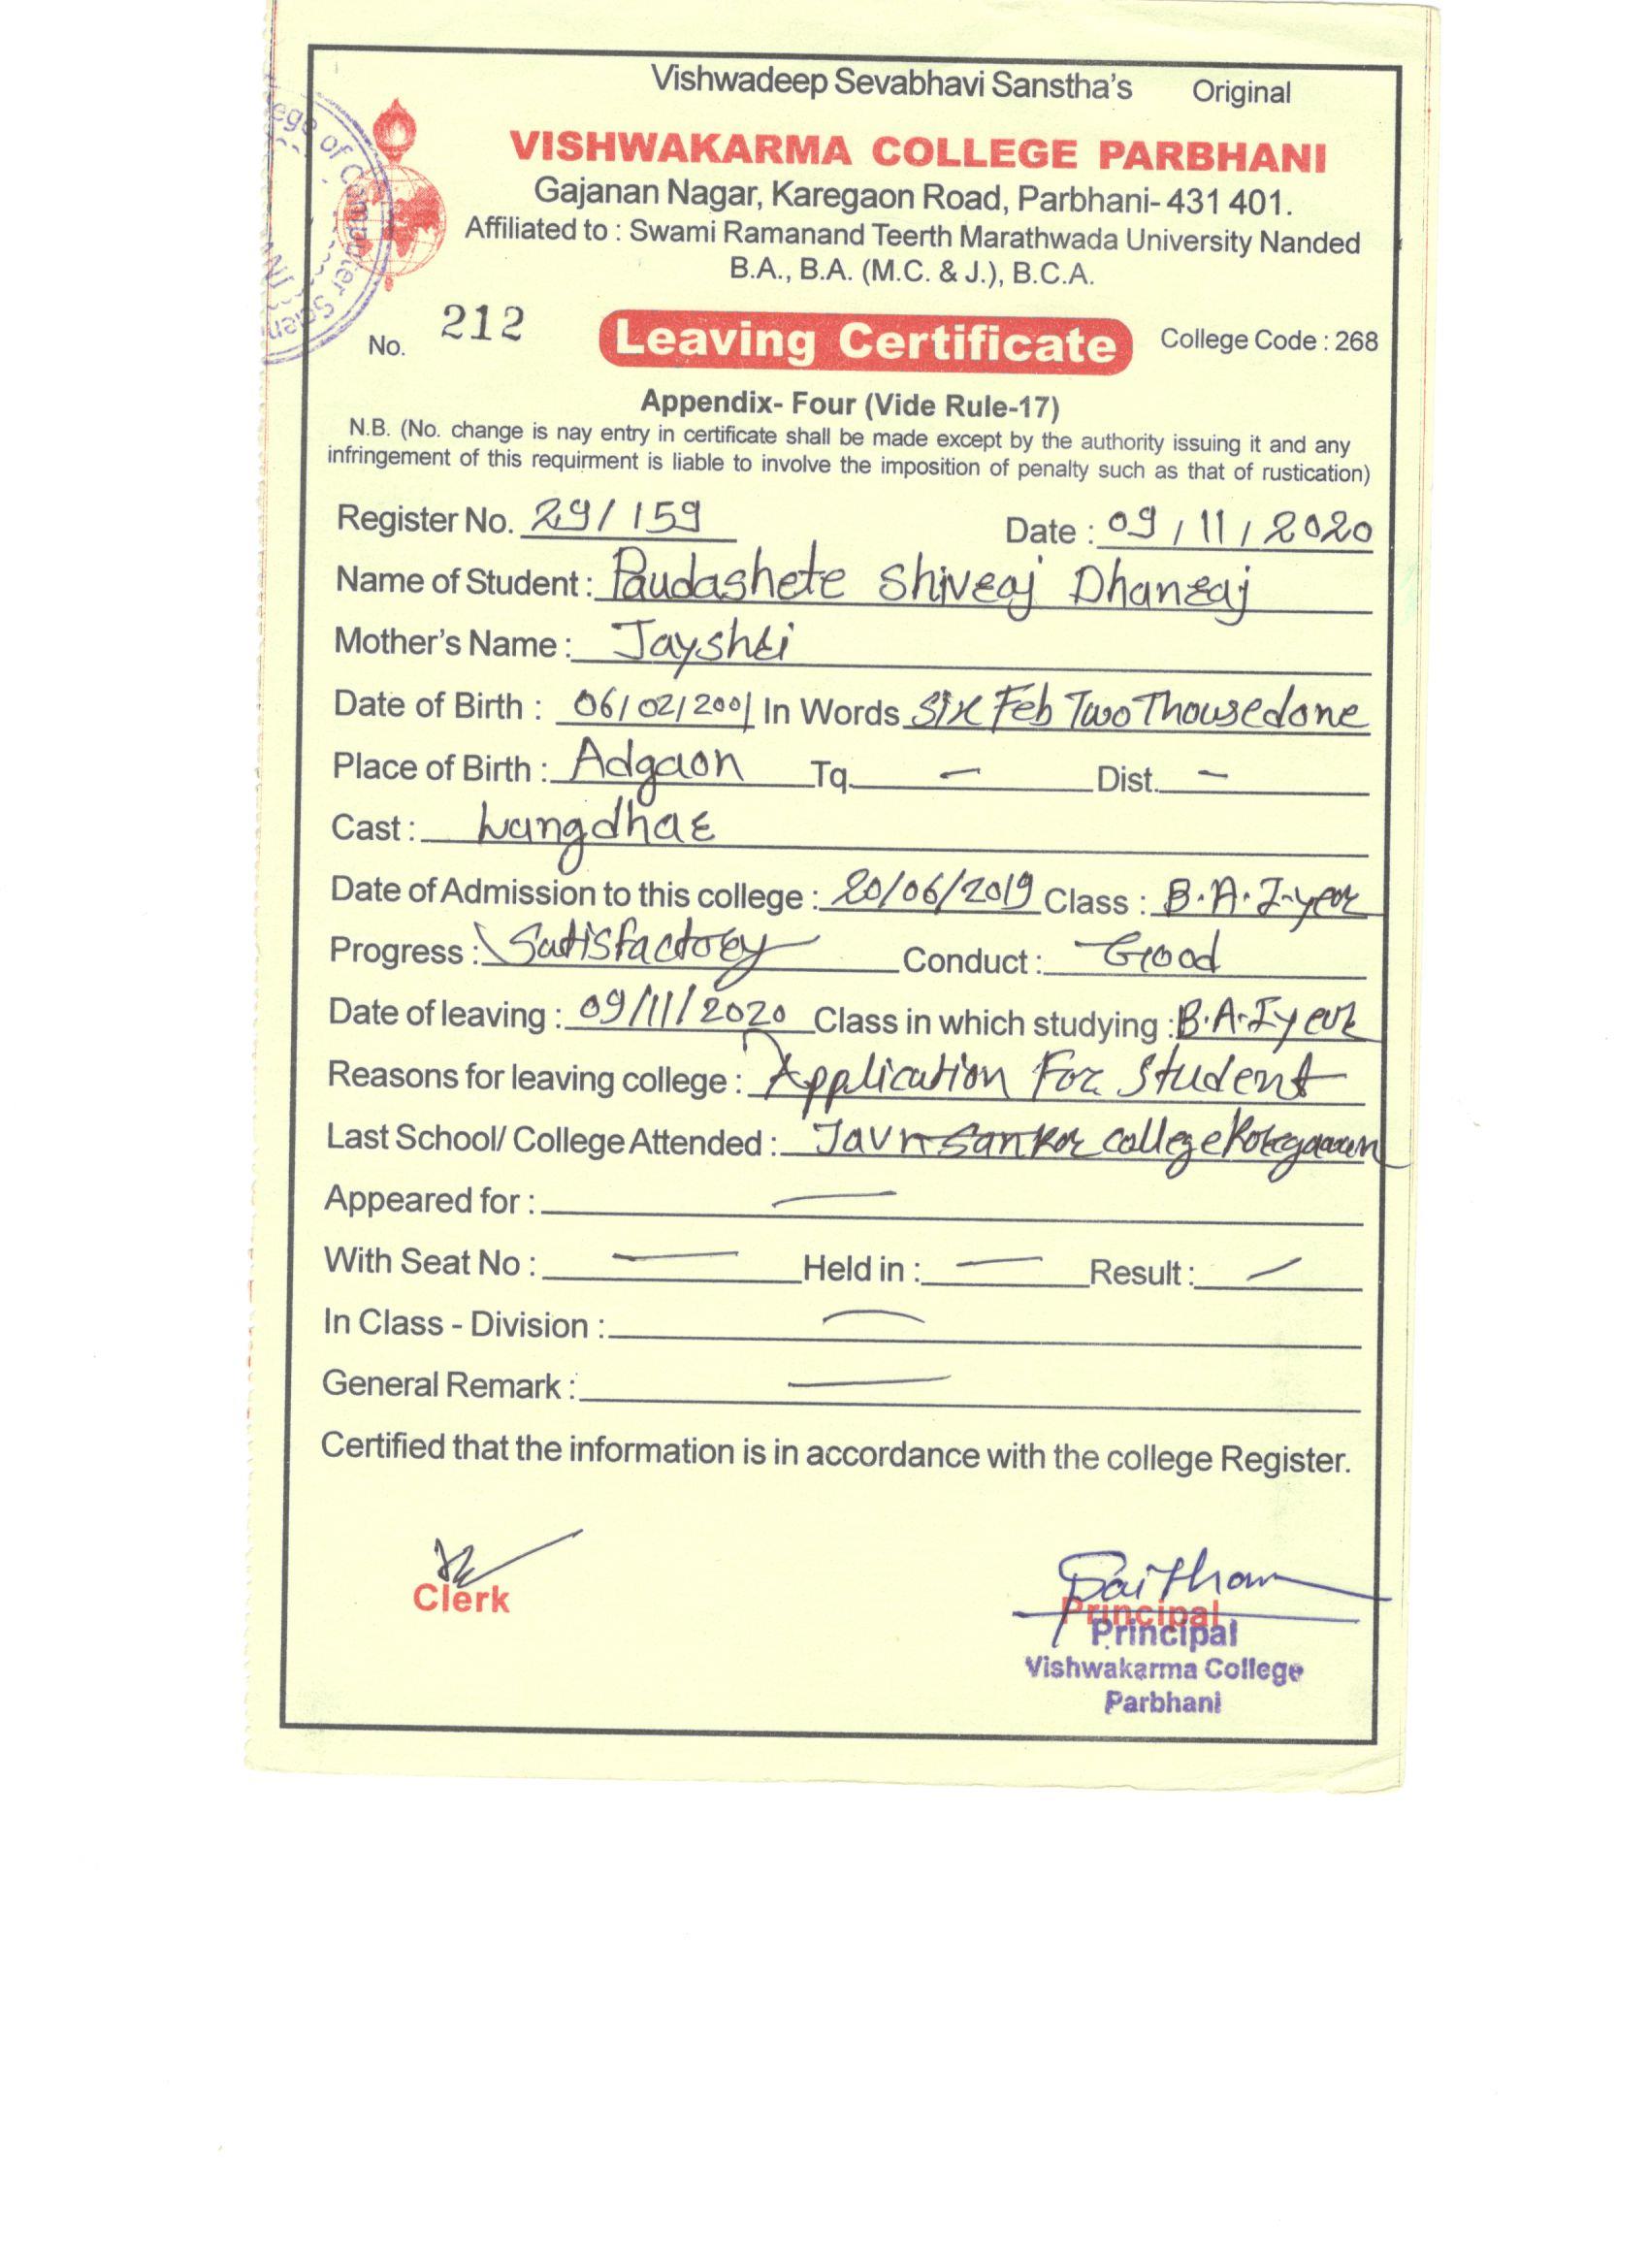 Vishwadeep Sevabhavi Sanstha's Original
VISHWAKARMA COLLEGE PARBHANI
Gajanan Nagar, Karegaon Road, Parbhani- 431 401.
Affiliated to : Swami Ramanand Teerth Marathwada University Nanded
B.A., B.A. (M.C. & J.), B.C.A.
No. 212 Leaving Certificate College Code : 268
Appendix- Four (Vide Rule-17)
N.B. (No. change is nay entry in certificate shall be made except by the authority issuing it and any
infringement of this requirment is liable to involve the imposition of penalty such as that of rustication)
Register No. 29/159 Date : 09/11/2020
Name of Student : Paudashete Shivraj Dhanraj
Mother's Name : Jayshri
Date of Birth : 06/02/2001 In Words Six Feb Two Thousedone
Place of Birth : Adgaon Tq. — Dist. —
Cast : 
Date of Admission to this college : 20/06/2019 Class : B.A.I-year
Progress : Satisfactory Conduct : Good
Date of leaving : 09/11/2020 Class in which studying : B.A.I year
Reasons for leaving college : Application For Student
Last School/ College Attended : college
Appeared for : —
With Seat No : — Held in : — Result : —
In Class - Division : —
General Remark : —
Certified that the information is in accordance with the college Register.
Clerk
Principal
Principal
Vishwakarma College
Parbhani